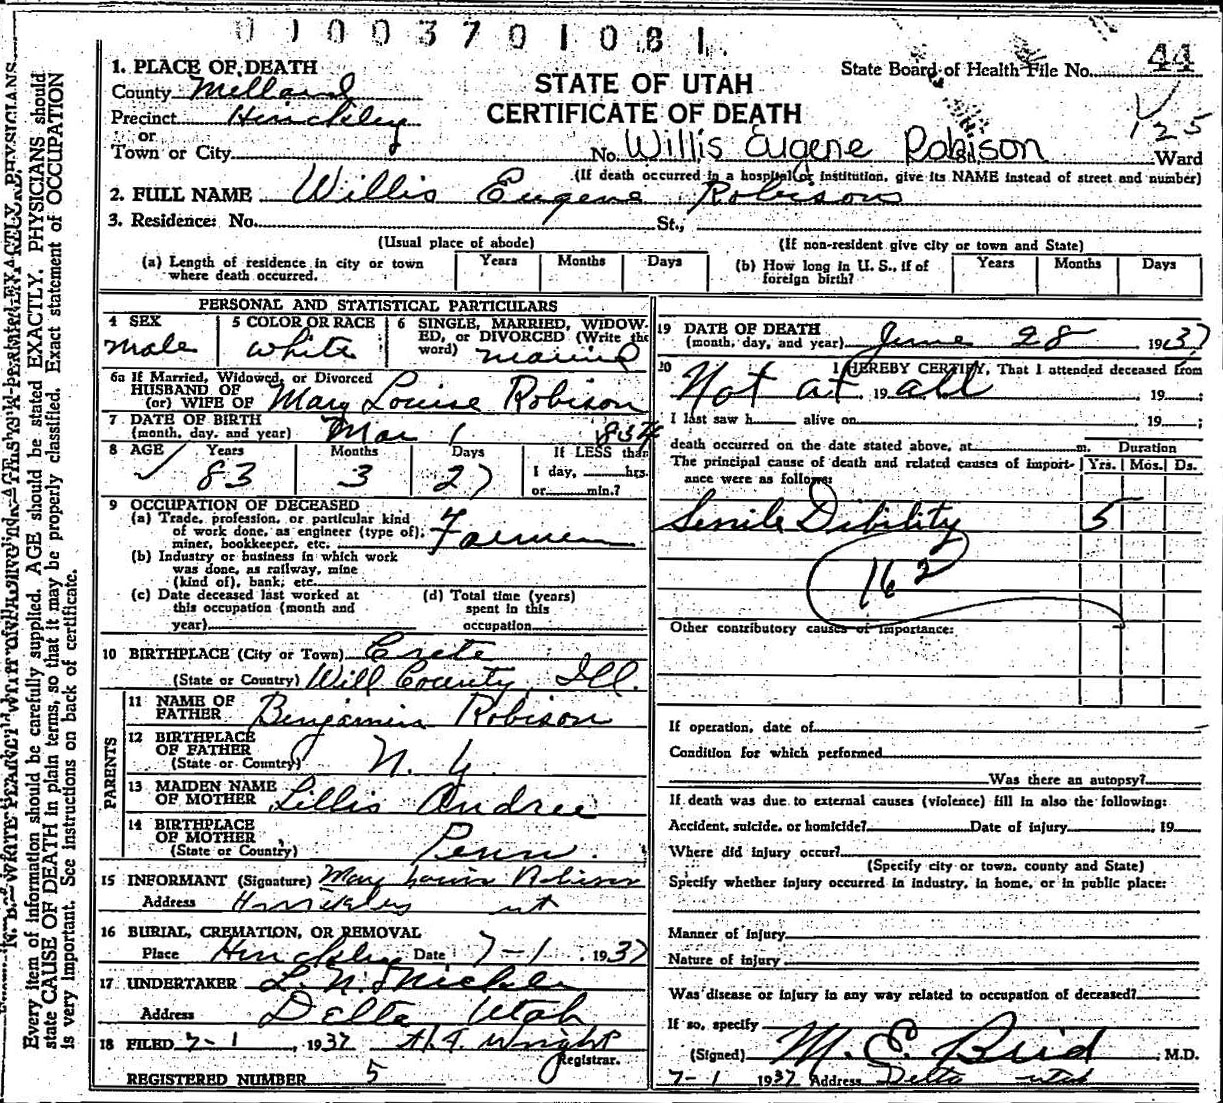 01003701081.
1. PLACE OF DEATH
County Millard
STATE OF UTAH
CERTIFICATE OF DEATH
State Board of Health File No. 44
125
Precinct Hinckley
or
Town or City No. Willis Eugene Robison Ward
(If death occurred in a hospital or institution, give its NAME instead of street and number)
2. FULL NAME Willis Eugene Robison
3. Residence: No. St.,
(Usual place of abode) (If non-resident give city or town and State)
(a) Length of residence in city or town where death occurred. Years Months Days
(b) How long in U. S., if of foreign birth? Years Months Days
PERSONAL AND STATISTICAL PARTICULARS
4 SEX
Male
5 COLOR OR RACE
White
6 SINGLE, MARRIED, WIDOW-
ED, or DIVORCED (Write the
word) Married
6a If Married, Widowed, or Divorced
HUSBAND OF
(or) WIFE OF Mary Louise Robison
7 DATE OF BIRTH
(month, day, and year) Mar 1 1834
8 AGE Years Months Days If LESS than
83 3 27 1 day, hrs.
or min.?
9 OCCUPATION OF DECEASED
(a) Trade, profession, or particular kind
of work done, as engineer (type of),
miner, bookkeeper, etc. Farmer
(b) Industry or business in which work
was done, as railway, mine
(kind of), bank, etc.
(c) Date deceased last worked at
this occupation (month and
year)
(d) Total time (years)
spent in this
occupation
10 BIRTHPLACE (City or Town) Crete
(State or Country) Will County, Ill.
PARENTS
11 NAME OF
FATHER Benjamin Robison
12 BIRTHPLACE
OF FATHER
(State or Country) N. Y.
13 MAIDEN NAME
OF MOTHER Lillis Andree
14 BIRTHPLACE
OF MOTHER
(State or Country) Penn.
15 INFORMANT (Signature) Mary Louis Robison
Address Hinckley ut
16 BURIAL, CREMATION, OR REMOVAL
Place Hinckley Date 7-1 1937
17 UNDERTAKER
Address Delta Utah
18 FILED 7-1, 1937 H. F. Wright
Registrar.
REGISTERED NUMBER 5
19 DATE OF DEATH
(month, day, and year) June 28 1937
20 I HEREBY CERTIFY, That I attended deceased from
Not at 19 all 19 ;
I last saw h alive on 19 ;
death occurred on the date stated above, at m. Duration
The principal cause of death and related causes of import-
ance were as follows: Yrs. Mos. Ds.
Senile Dibility 5
162
Other contributory causes of importance:
If operation, date of
Condition for which performed
Was there an autopsy?
If death was due to external causes (violence) fill in also the following:
Accident, suicide, or homicide? Date of injury , 19
Where did injury occur?
(Specify city or town, county and State)
Specify whether injury occurred in industry, in home, or in public place:
Manner of injury
Nature of injury
Was disease or injury in any way related to occupation of deceased?
If so, specify
(Signed) M. E. Bird , M.D.
7-1 1937 Address Delta Utah
Every item of information should be carefully supplied. AGE should be stated EXACTLY. PHYSICIANS should
state CAUSE OF DEATH in plain terms, so that it may be properly classified. Exact statement of OCCUPATION
is very important. See instructions on back of certificate.